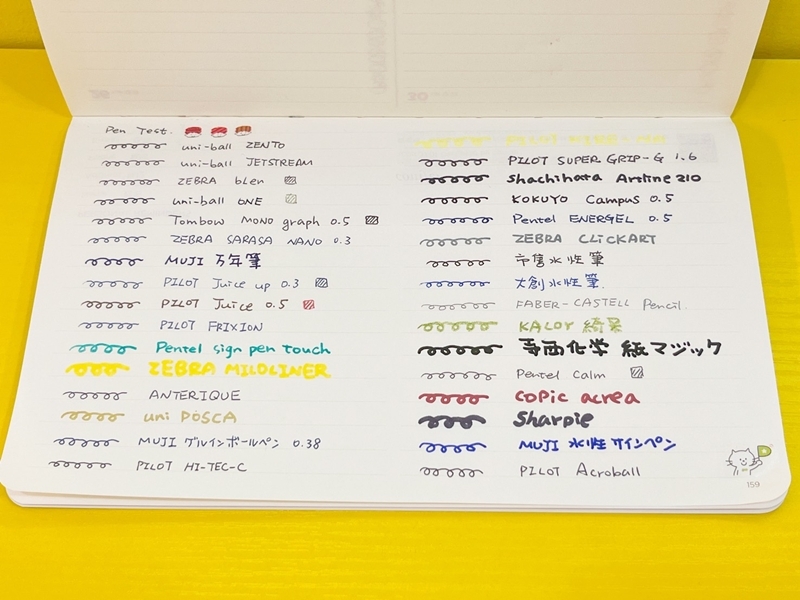 Pen Test.
uni-ball ZENTO
uni-ball JETSTREAM
ZEBRA bLen
uni-ball ONE
Tombow MONO graph 0.5
ZEBRA SARASA NANO 0.3
MUJI 万年筆
PILOT Juice up 0.3
PILOT Juice 0.5
PILOT FRIXION
Pentel sign pen touch
ZEBRA MILDLINER
ANTERIQUE
uni POSCA
MUJI ゲルインボールペン 0.38
PILOT HI-TEC-C
PILOT
PILOT SUPER GRIP-G 1.6
Shachihata Artline 210
KOKUYO Campus 0.5
Pentel ENERGEL 0.5
ZEBRA CLiCKART
市售水性筆
大創水性筆.
FABER-CASTELL Pencil.
KALOY 綺果
寺西化学 紙マジック
Pentel Calm
Copic acrea
Sharpie
MUJI 水性サインペン
PILOT Acroball
159